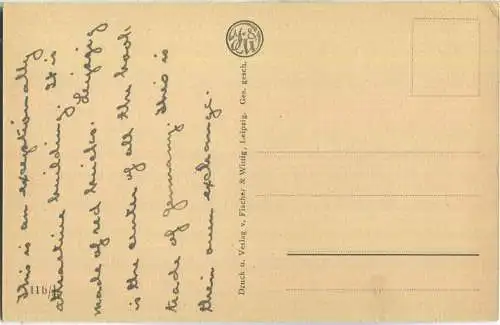 This is an exceptionally
attractive building. It is
made of red bricks. Leipzig
is the center of all the book
trade of Germany this is
their own exchange.
Druck u. Verlag v. Fischer & Wittig, Leipzig. Ges. gesch.